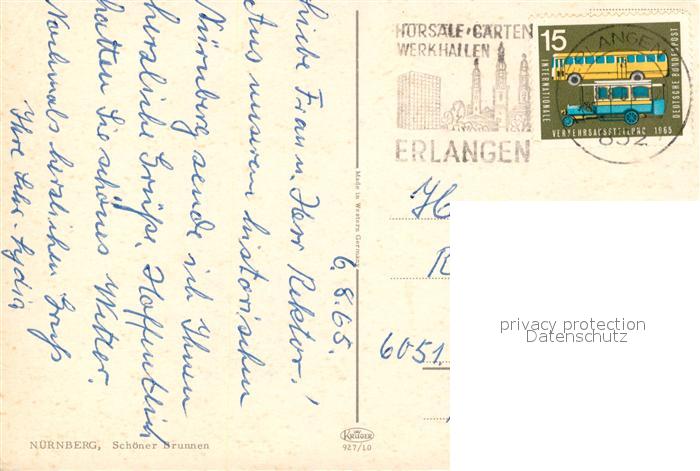 HÖRSÄLE·GÄRTEN
WERKHALLEN
ERLANGEN
15
INTERNATIONALE
VERKEHRSAUSSTELLUNG 1965
DEUTSCHE BUNDESPOST
ERLANGEN
852
6.8.65.
Liebe Frau u. Herr Rektor!
Aus unserem historischen
Nürnberg sende ich Ihnen
herzliche Grüße. Hoffentlich
hatten Sie schönes Wetter.
Nochmals herzlichen Gruß
Ihre Lydia
Made in Western Germany
6051
privacy protection
by Veikkos
KRÜGER
927/10
NÜRNBERG, Schöner Brunnen